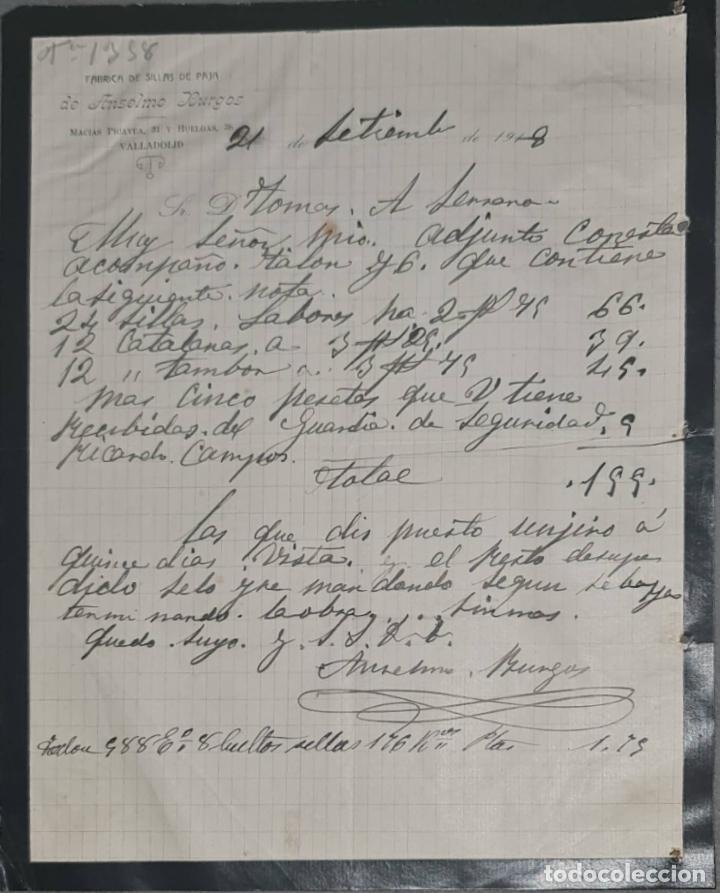 Nº 1338
FABRICA DE SILLAS DE PAJA
de Anselmo Burgos
MACIAS PICAVEA, 31 Y HUELGAS,
VALLADOLID
21 de Setiembre de 1918
Sr. D. Tomas. A Serrano
Muy Señor mio. adjunto con esta
acompaño. talon y 6. que contiene
la siguiente. nota.
24 sillas. Labores na. 2 pts 75 66.
12 Catalanas. a 3 pts 25. 39.
12 " tambor a. 3 pts 75 45.
mas cinco pesetas que V tiene
Recibidas. del Guardia. de Seguridad. 5
Ricardo. Campos.
Total .155.
las que dis puesto unjiro á
quince dias vista. y el resto desupe
dido selo yre mandando segun sebayas
termi nando. laobra. sinmas.
quedo. suyo. y. s. s.
Anselmo. Burgos
talon 988 8 bultos sillas 176 Kos Ptas 1.75
todocoleccion